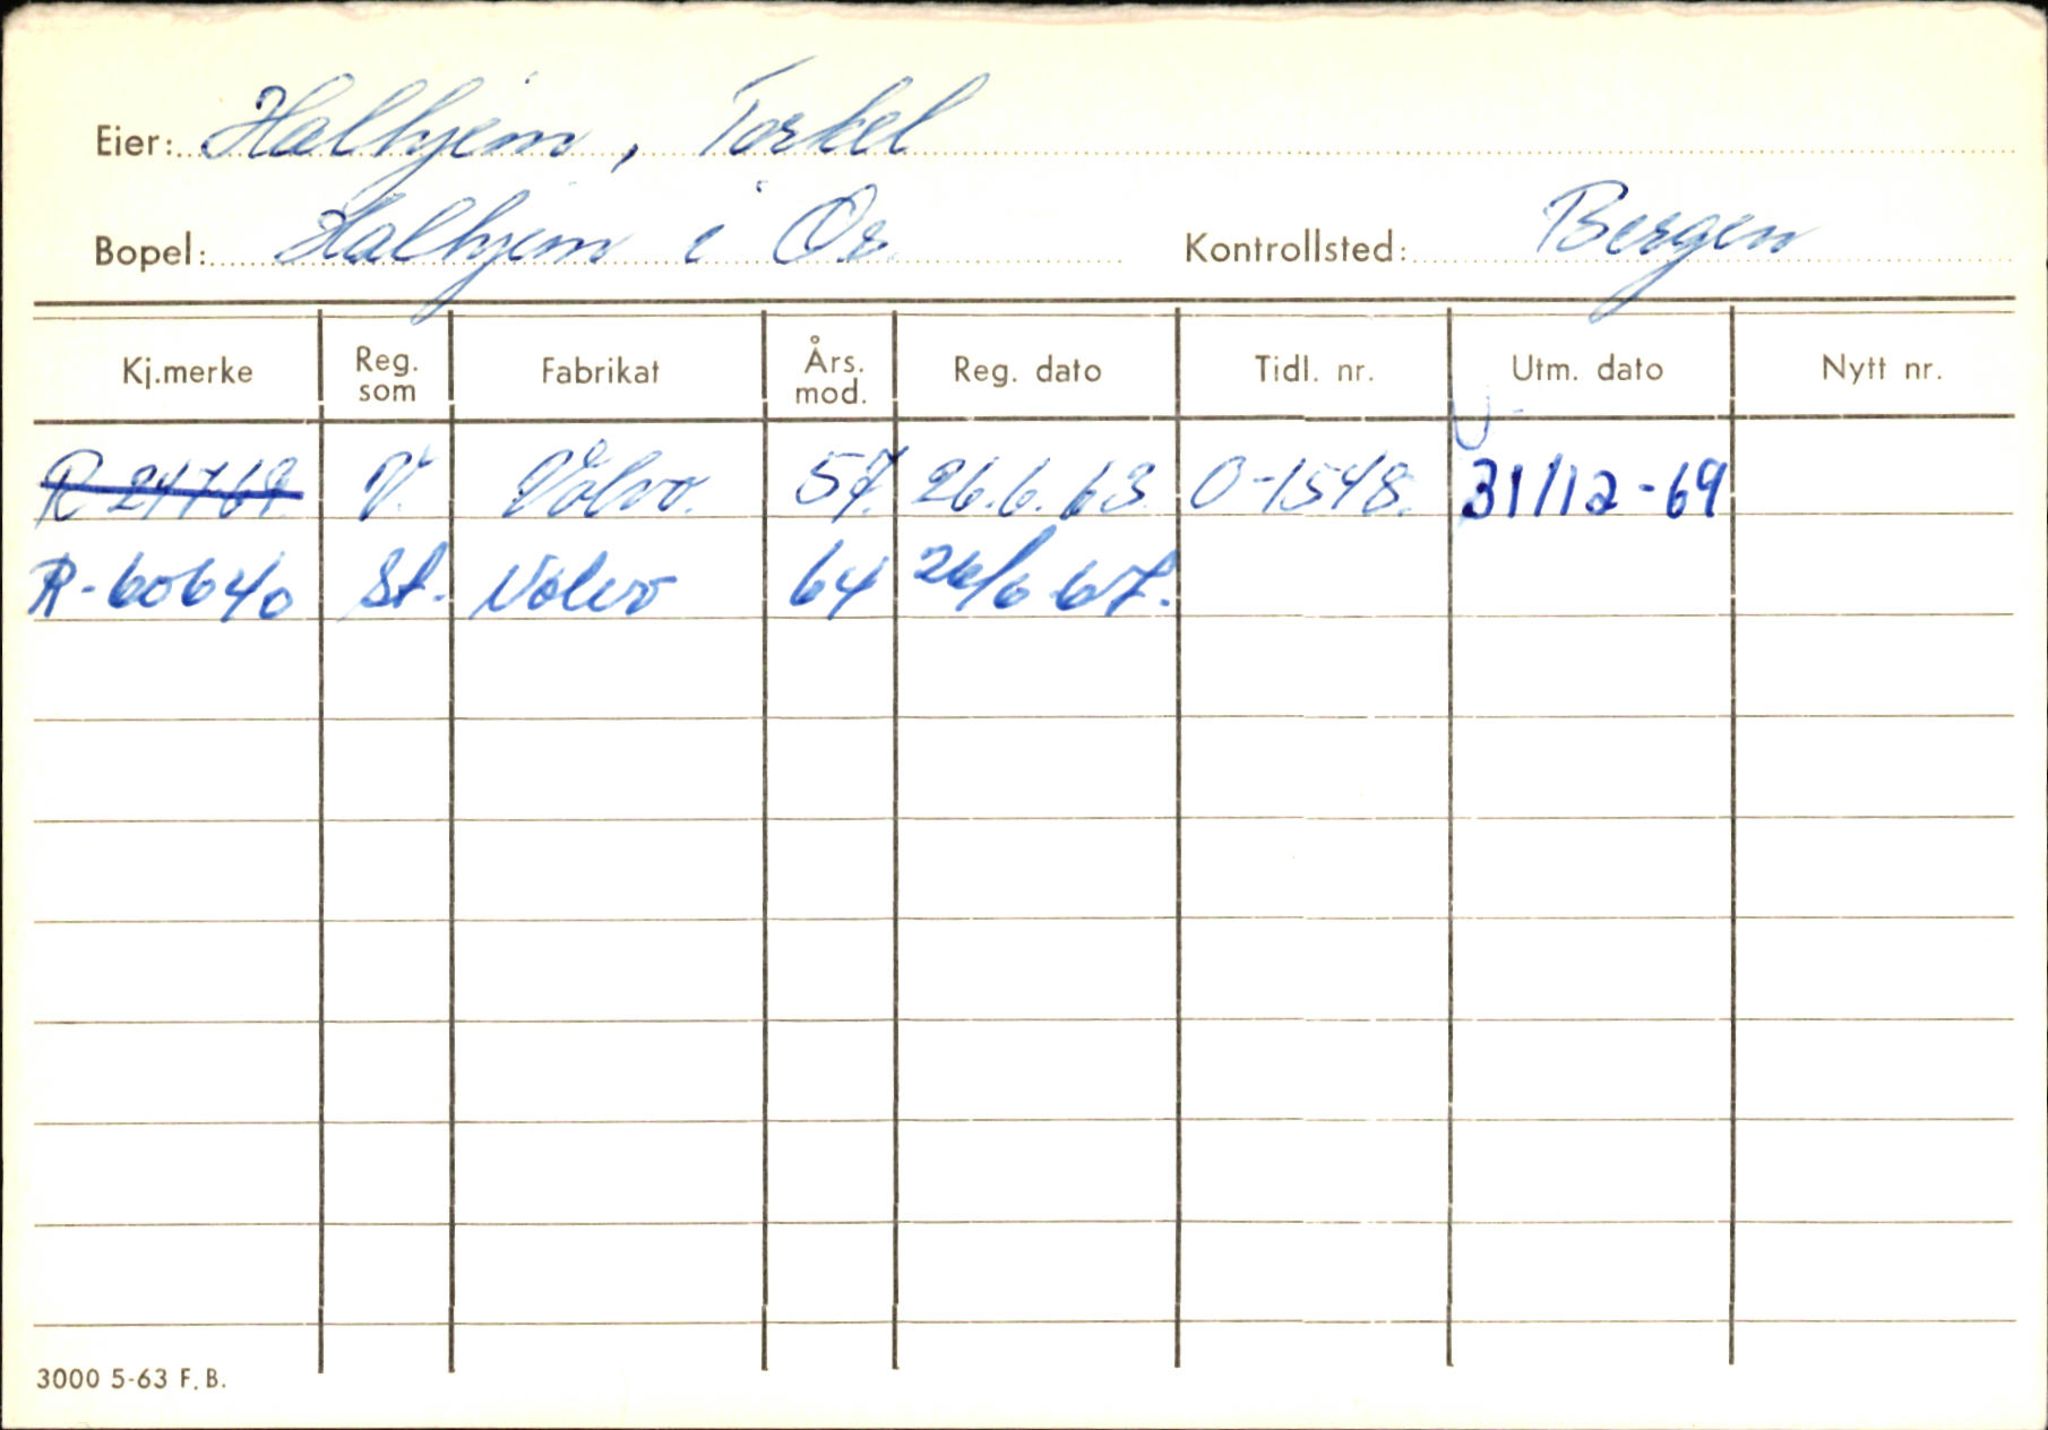 Eier: Halhjem, Torkel
Bopel: Halhjem i Os. Kontrollsted: Bergen
Kj.merke Reg. som Fabrikat Års. mod. Reg. dato Tidl. nr. Utm. dato Nytt nr.
R-24769 V. Volvo. 57. 26.6.63 O-1548. 31/12-69
R-60640 St. Volvo 64 26/6 67.
3000 5-63 F.B.